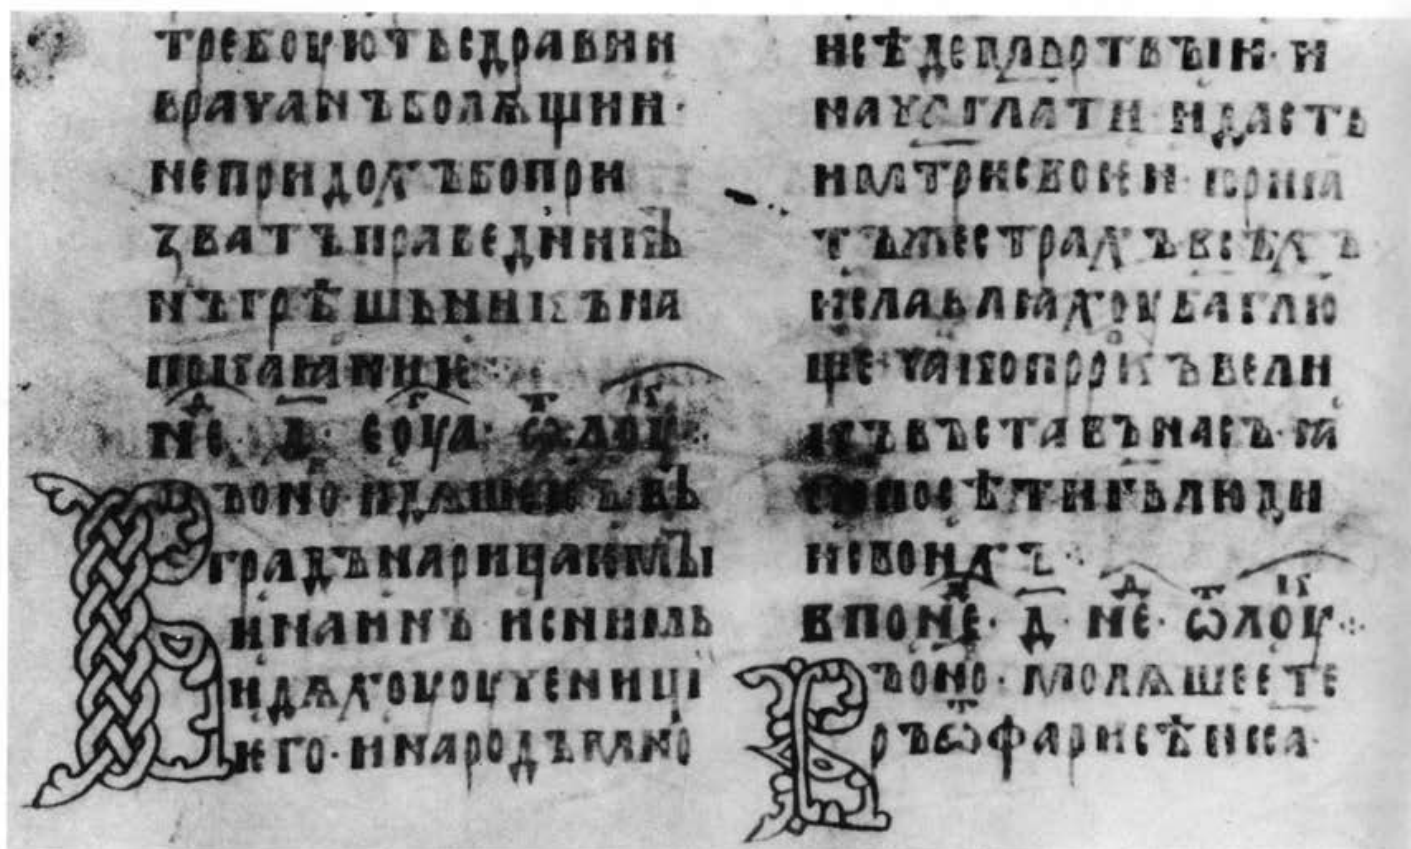 требоуютьсдравии
врачанъболѧщии·
непридохъбопри
ꙁватъправедьникъ
нъгрѣшьникъна
покаꙗние
не· д҃· еоуа· ѿлоук·:
ъоно·идѧшеісъвъ
градънарицаюмꙑ
инаинъ исниль
идѧхоуоученици
ѥго·инародъмно
исѣдемьртвꙑи·и
начатглати·идасть
имтрисвоѥи·иприꙗ
тъжестрахъвсѣхъ
иславлѧхоубаглю
ще·ꙗкопрркъвели
къвъставънасъ·ꙗ
копосѣтигьлюди
исвоихъ·:
впоне· д҃· не· ѿлоук·:
ъоно·молѧшеете
ръѿфарисѣиіса·